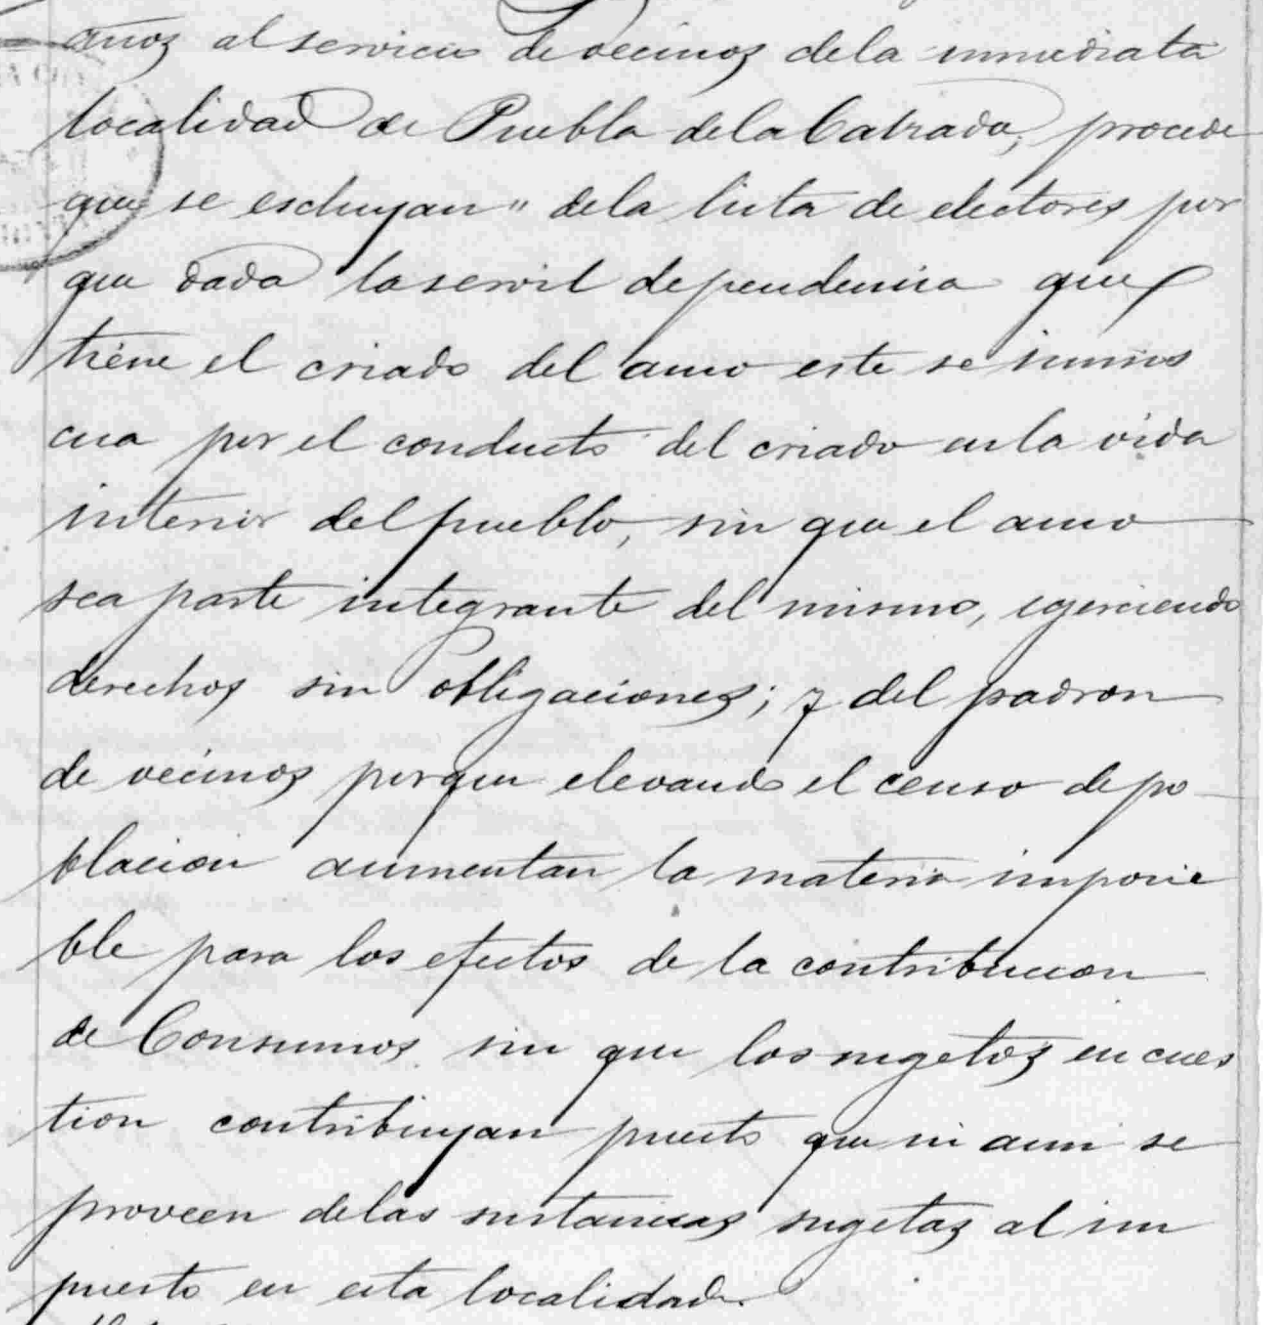 años al servicio de vecinos de la inmediata
localidad de Puebla de la Calzada, procede
que se escluyan" de la lista de electores por
que dada la servil dependencia que
tiene el criado del amo este se inmis
cua por el conducto del criado en la vida
interior del pueblo, sin que el amo
sea parte integrante del mismo, egerciendo
derechos sin obligaciones; y del padron
de vecinos porque elevando el censo de po
blacion aumentan la materia imponi
ble para los efectos de la contribucion
de Consumos sin que los sugetos en cues
tion contribuyan puesto que ni aun se
proveen de las sustancias sugetas al im
puesto en esta localidad.